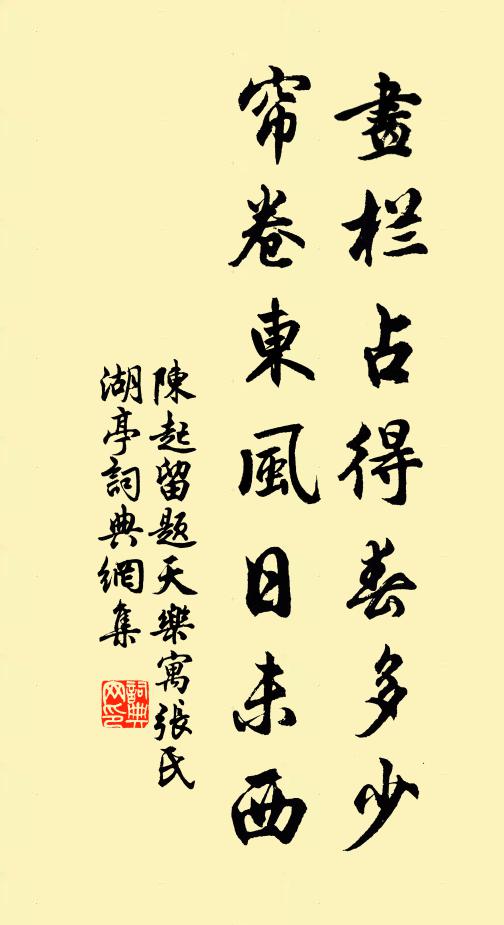 畫栏占得春多少
帘卷東風日未西
陳起留題天樂寓張氏
湖亭詞典網集
詞典网印